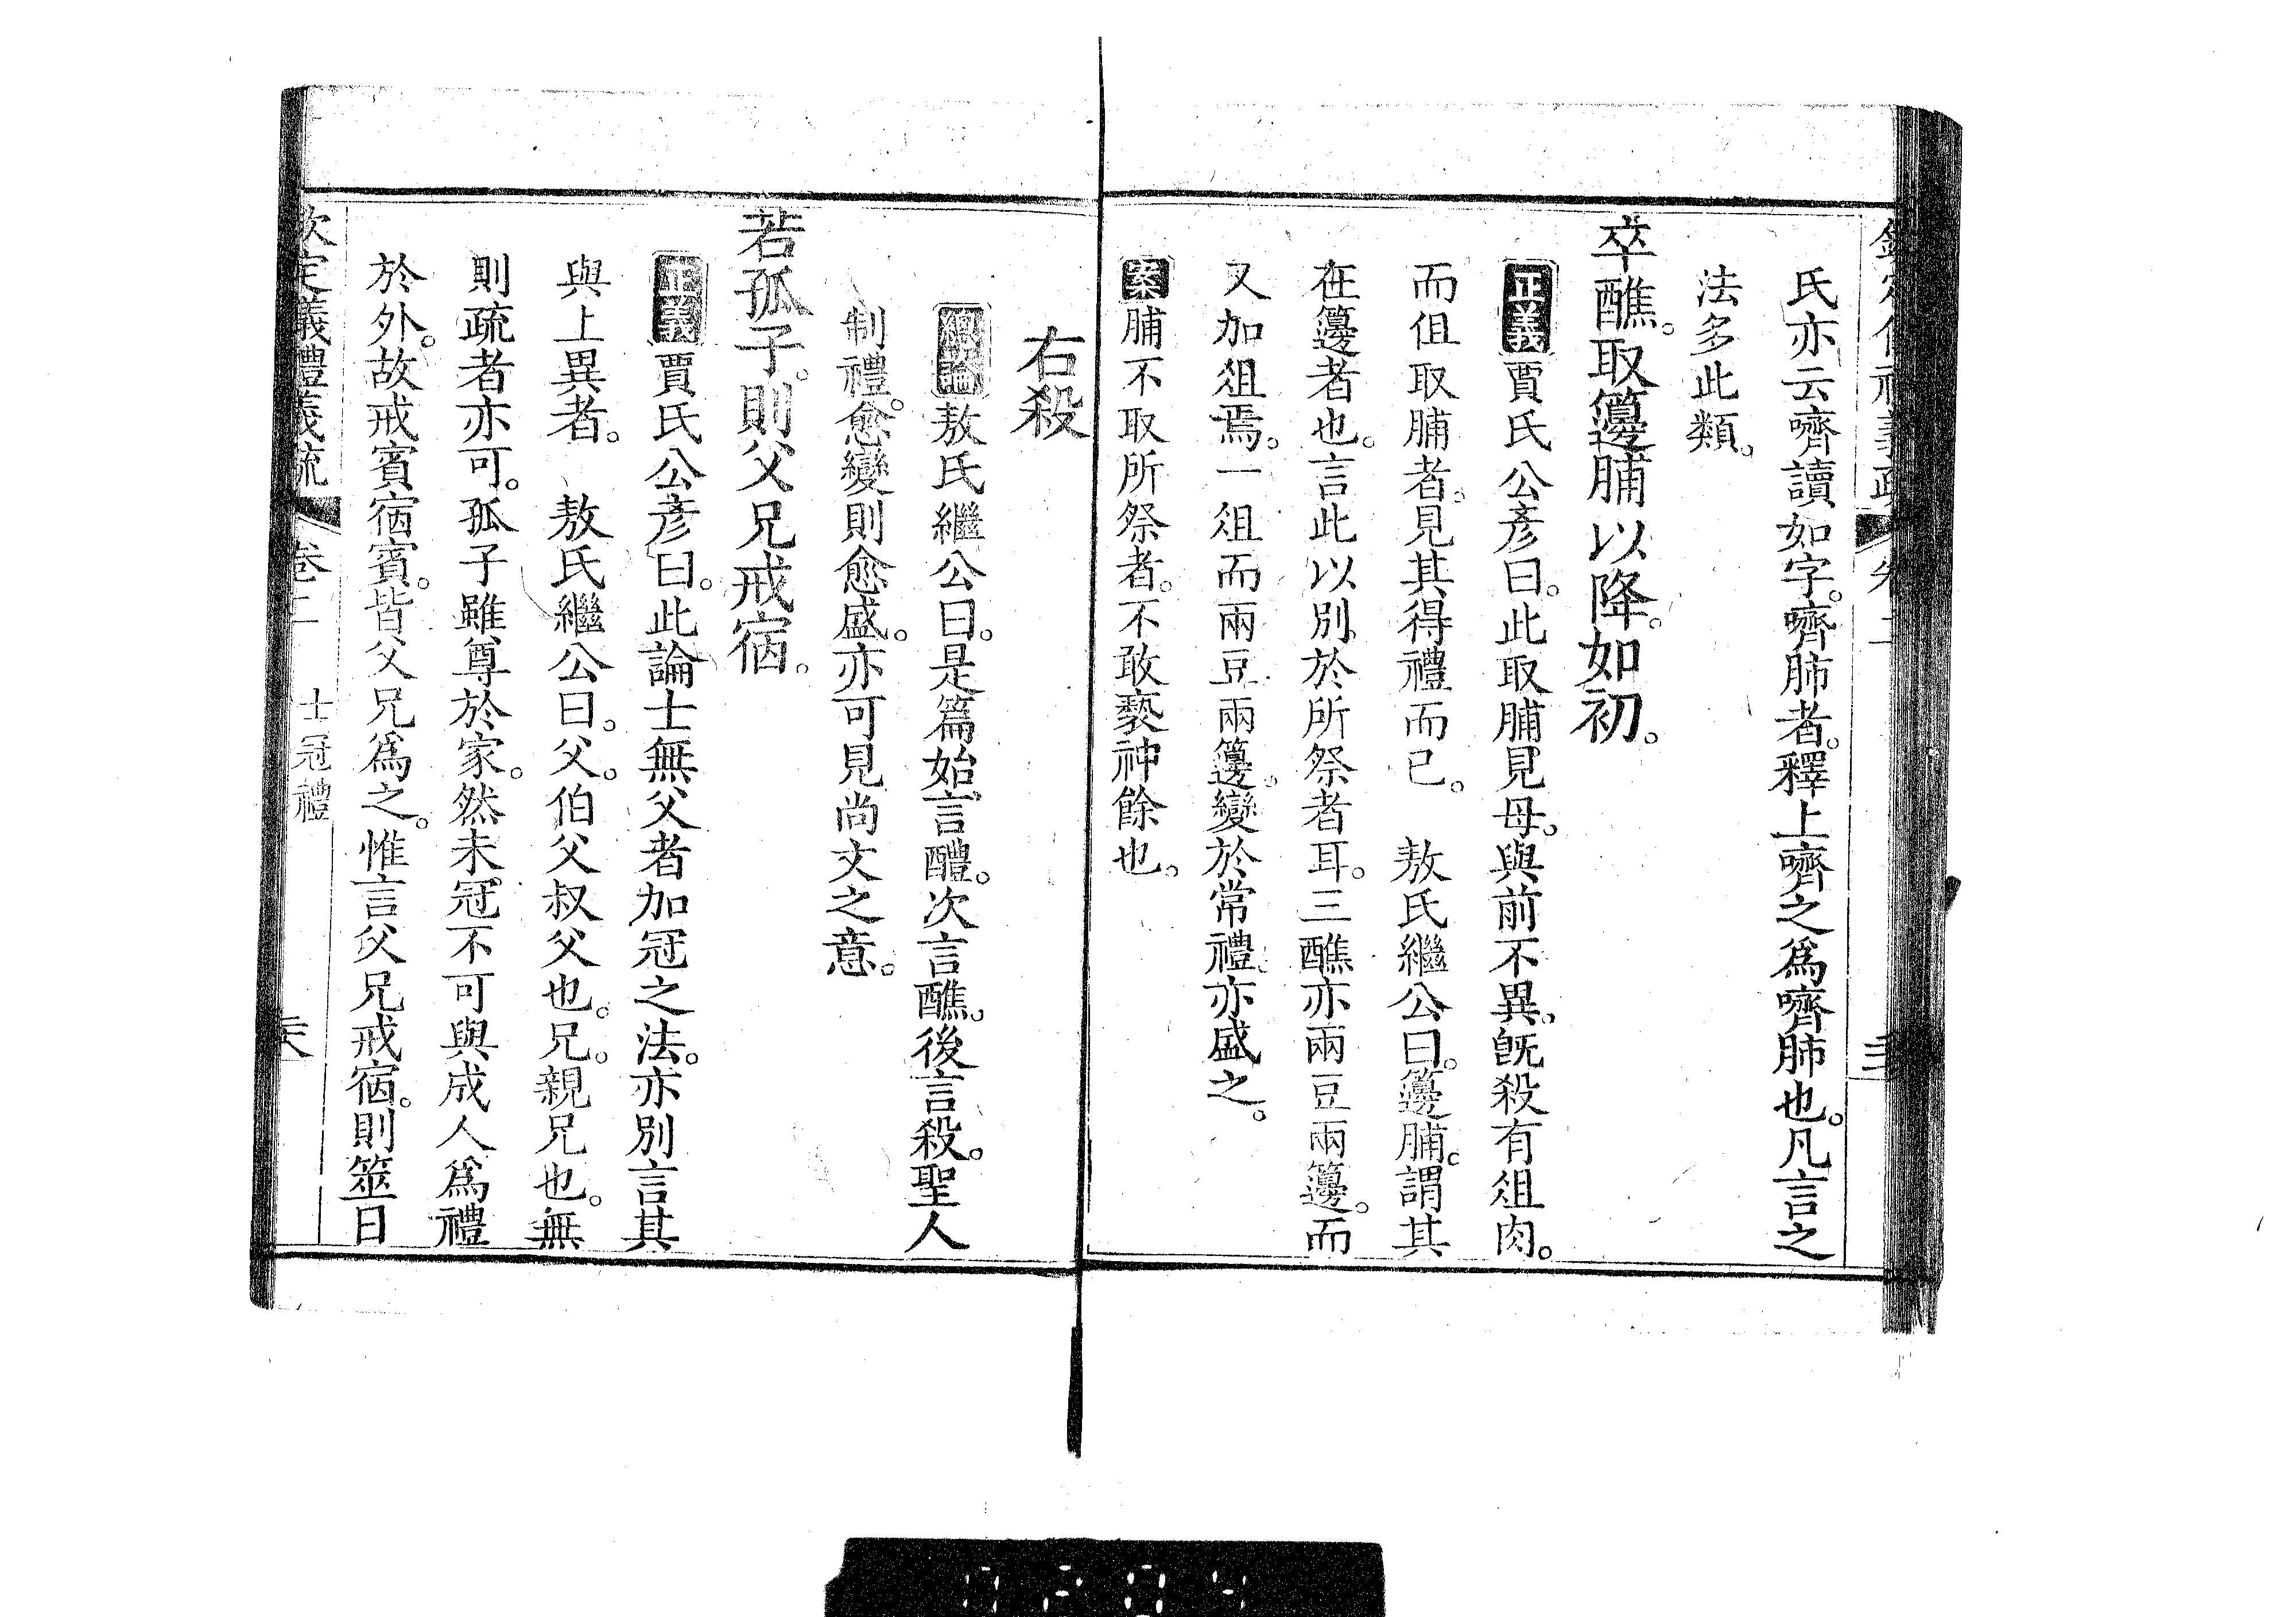 氏亦云嚌讀如字。嚌肺者。釋上嚌之爲嚌肺也。凡言之
法多此類。
卒醮。取籩脯以降。如初。
正義賈氏公彥曰。此取脯見母。與前不異。旣殺有俎肉。
而但取脯者。見其得禮而已。　敖氏繼公曰。籩脯。謂其
在籩者也。言此以別於所祭者耳。三醮亦兩豆兩籩。而
又加俎焉。一俎而兩豆兩籩。變於常禮。亦盛之。
案脯不取所祭者。不敢褻神餘也。
右殺
總論敖氏繼公曰。是篇始言醴。次言醮。後言殺。聖人
制禮。愈變則愈盛。亦可見尚文之意。
若孤子。則父兄戒宿。
正義賈氏公彥曰。此論士無父者加冠之法。亦別言其
與上異者。　敖氏繼公曰。父。伯父叔父也。兄。親兄也。無
則疏者亦可。孤子雖尊於家。然未冠不可與成人爲禮
於外。故戒賓宿賓。皆父兄爲之。惟言父兄戒宿。則筮日
欽定義禮義疏　卷二　士冠禮